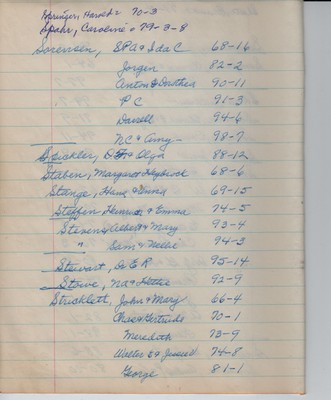 Springer, Harock 70-3
Spahr, Caroline 79-3-8
Sorensen, S P A & Ida C 68-16
Jorgen 82-2
Anton & Dorothea 90-11
P C 91-3
Darrell 94-6
N C & Amy 98-7
Spickler, D F & Olga 88-12
Staben, Margaret Heybrock 68-6
Stange, Hans & Anna 69-15
Steffen, Herman & Emma 74-5
Stevens, Albert & Mary 93-4
" Sam & Nellie 94-3
Stewart, Dr E R 95-14
Stowe, Na & Hettie 92-9
Stricklett, John & Mary 66-4
Chas & Gertrude 70-1
Meredith 73-9
Walter E & Jessie V 74-8
George 81-1